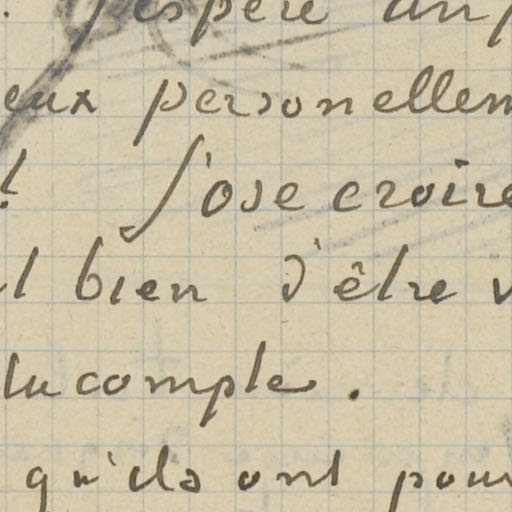 . J'espère un
eux personellem
! J'ose croire
l bien d'être v
tu comple .
qu'ils ont pour